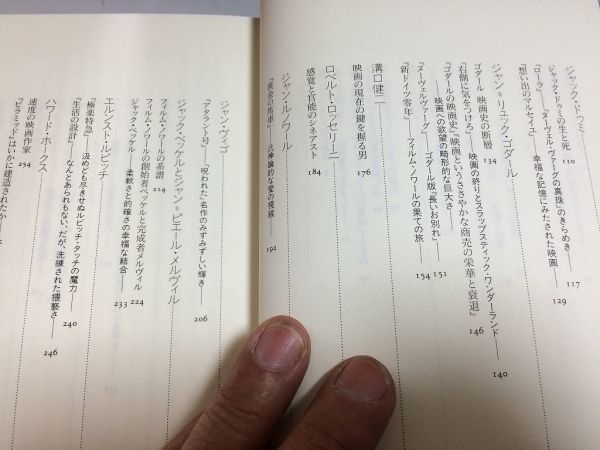 ジャック・ドゥミ
ジャック・ドゥミの生と死 110
『ローラ』——「ヌーヴェル・ヴァーグの真珠」のきらめき—— 117
『想い出のマルセイユ』——幸福な記憶にみたされた映画—— 129
ジャン=リュック・ゴダール
ゴダール 映画史の断層 134
『右側に気をつけろ』——映画の終りとスラップスティック・ワンダーランド—— 140
『ゴダールの映画史』『映画というささやかな商売の栄華と衰退』
——映画への欲望の畸形的な巨大さ—— 146
『ヌーヴェルヴァーグ』——ゴダール版『長いお別れ』 151
『新ドイツ零年』——フィルム・ノワールの果ての旅—— 154
溝口健二
映画の現在の鍵を握る男 176
ロベルト・ロッセリーニ
感覚と官能のシネアスト 184
ジャン・ルノワール
『黄金の馬車』——汎神論的な愛の視線—— 192
ジャン・ヴィゴ
『アタラント号』——「呪われた」名作のみずみずしい輝き—— 206
ジャック・ベッケルとジャン=ピエール・メルヴィル
フィルム・ノワールの系譜 214
フィルム・ノワールの創始者ベッケルと完成者メルヴィル 224
ジャック・ベッケル——柔軟さと的確さの幸福な結合—— 233
エルンスト・ルビッチ
『極楽特急』——汲めども尽きせぬルビッチ・タッチの魔力—— 240
『生活の設計』——なんとあられもない、だが、洗練された猥褻さ—— 246
ハワード・ホークス
速度の映画作家 254
『ピラミッド』はいかに建造されたか